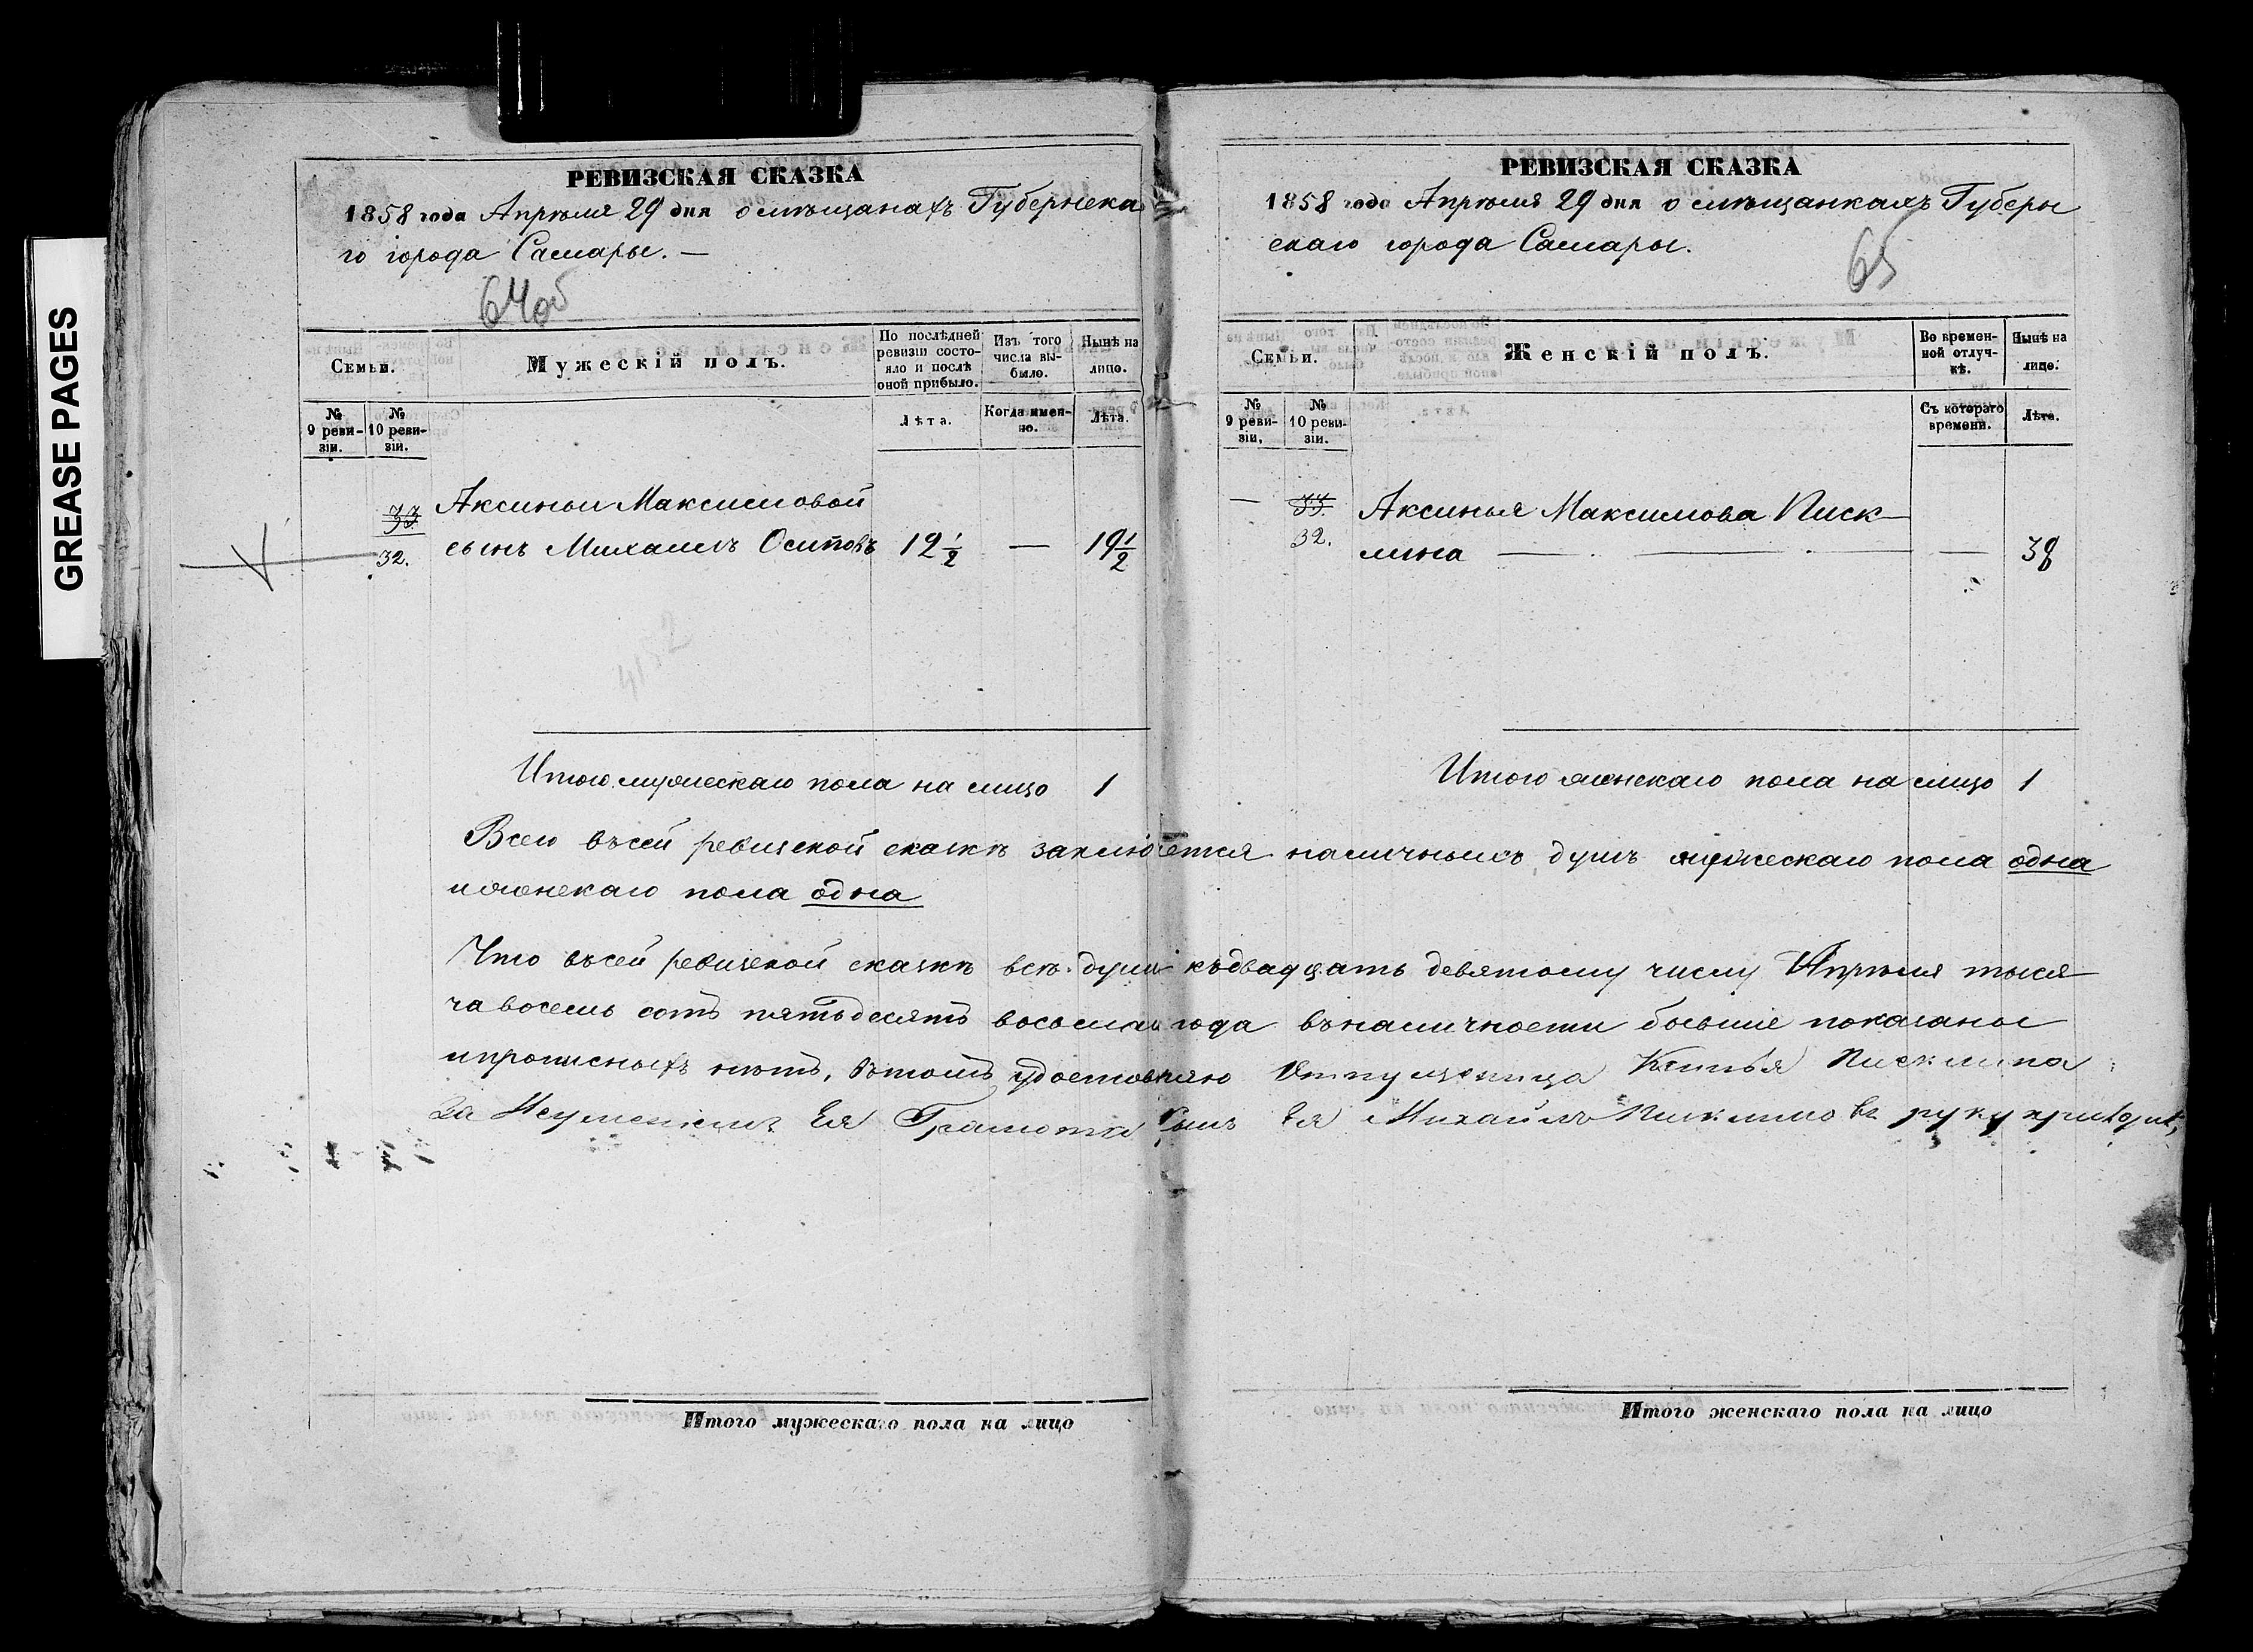 GREASE PAGES
РЕВИЗСКАЯ СКАЗКА
1858 года Апрѣля 29 дня о мѣщанахъ Губернска
го города Самары. —
64об
Семьи.
Мужескій полъ.
По послѣдней ревизіи состояло и послѣ оной прибыло.
Изъ того числа выбыло.
Нынѣ на лицо.
№ 9 ревизіи.
№ 10 ревизіи.
Лѣта.
Когда именно.
Лѣта.
33
32.
Аксиньи Максимовой
сынъ Михаилъ Осиповъ 12 1/2 — 19 1/2
4152
Итого мужескаго пола на лицо 1
РЕВИЗСКАЯ СКАЗКА
1858 года Апрѣля 29 дня о мѣщанкахъ Губерн
скаго города Самары.
65
Семьи.
Женскій полъ.
Во временной отлучкѣ.
Нынѣ на лицо.
№ 9 ревизіи.
№ 10 ревизіи.
Съ котораго времени.
Лѣта.
— 33. Аксинья Максимова Писк-
32.
лина — — — 38
Итого женскаго пола на лицо 1
Всего въ сей ревизской сказкѣ заключается наличныхъ душъ мужескаго пола одна
и женскаго пола одна
Что въ сей ревизской сказкѣ всѣ души къ двадцать девятому числу Апрѣля тыся-
ча восемь сотъ пятьдесятъ восьмаго года въ наличности бывшіе показаны
и прописныхъ нѣтъ, въ томъ удостовѣряю Отпущеница Писклина
За Неумениемъ Ея Грамоти Сынъ Ея Михайлъ руку
Итого мужескаго пола на лицо
Итого женскаго пола на лицо